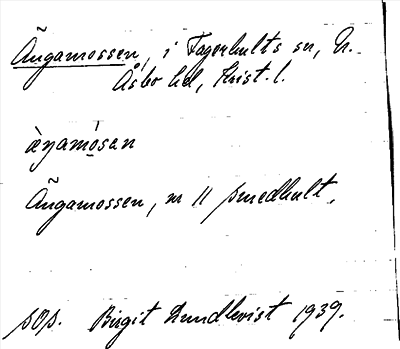 Ängamossen, i Fagerhults sn, N.
Åsbo hd, Krist. l.
Ängamossen, nr 11 Smedhult.
sop. Birgit Lundkvist 1939.